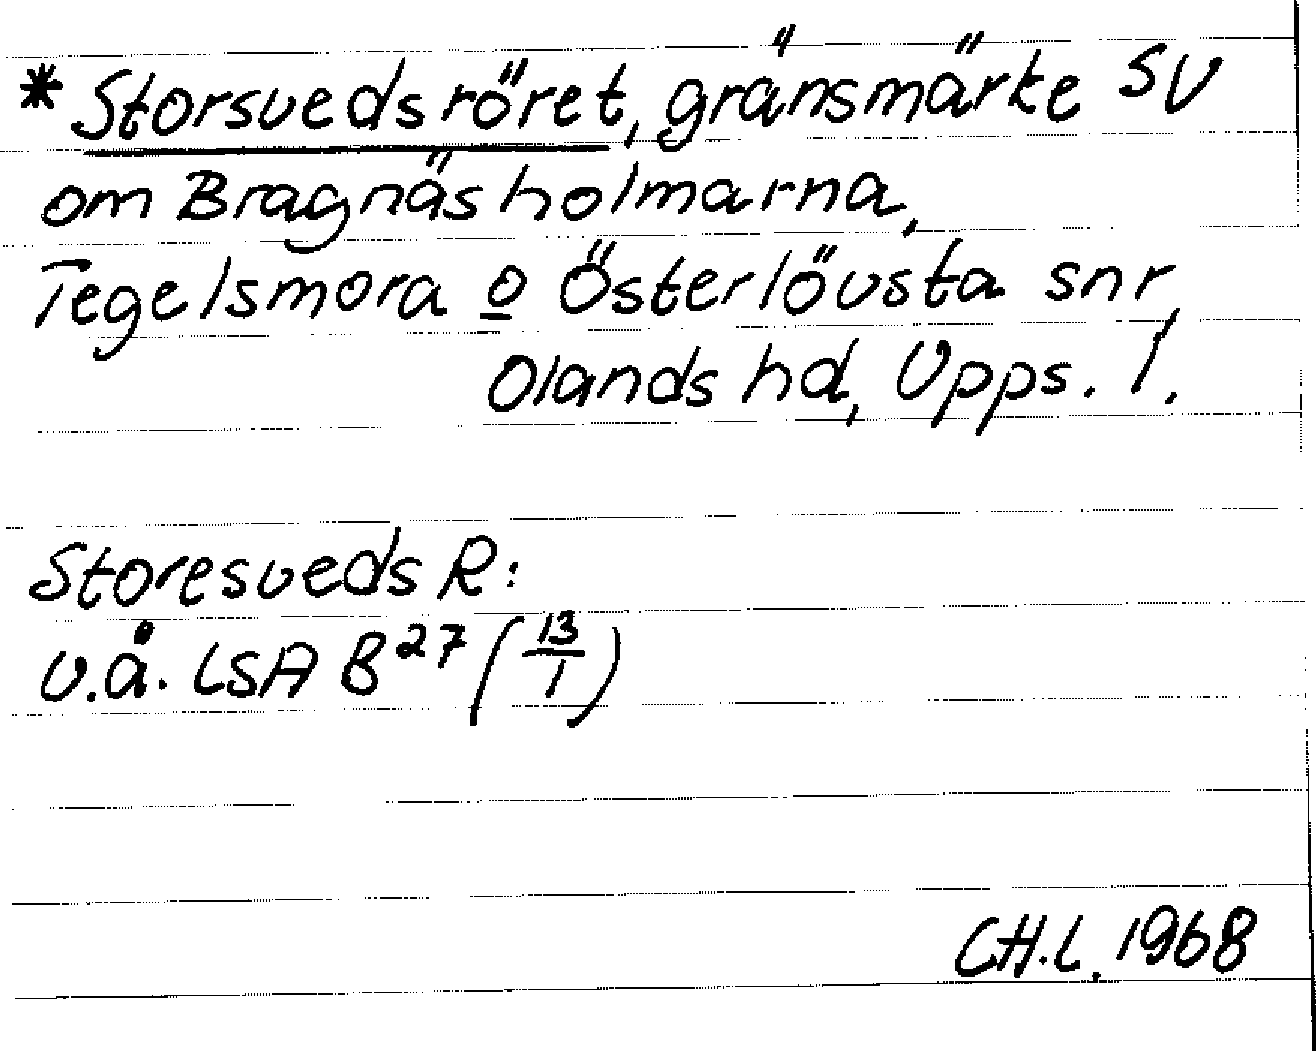 * Storsvedsröret, gränsmärke SV
om Bragnäsholmarna,
Tegelsmora o Österlövsta snr,
Olands hd, Upps. l.
Storesveds R:
u.å. LSA B27 (13/1)
CH.L. 1968